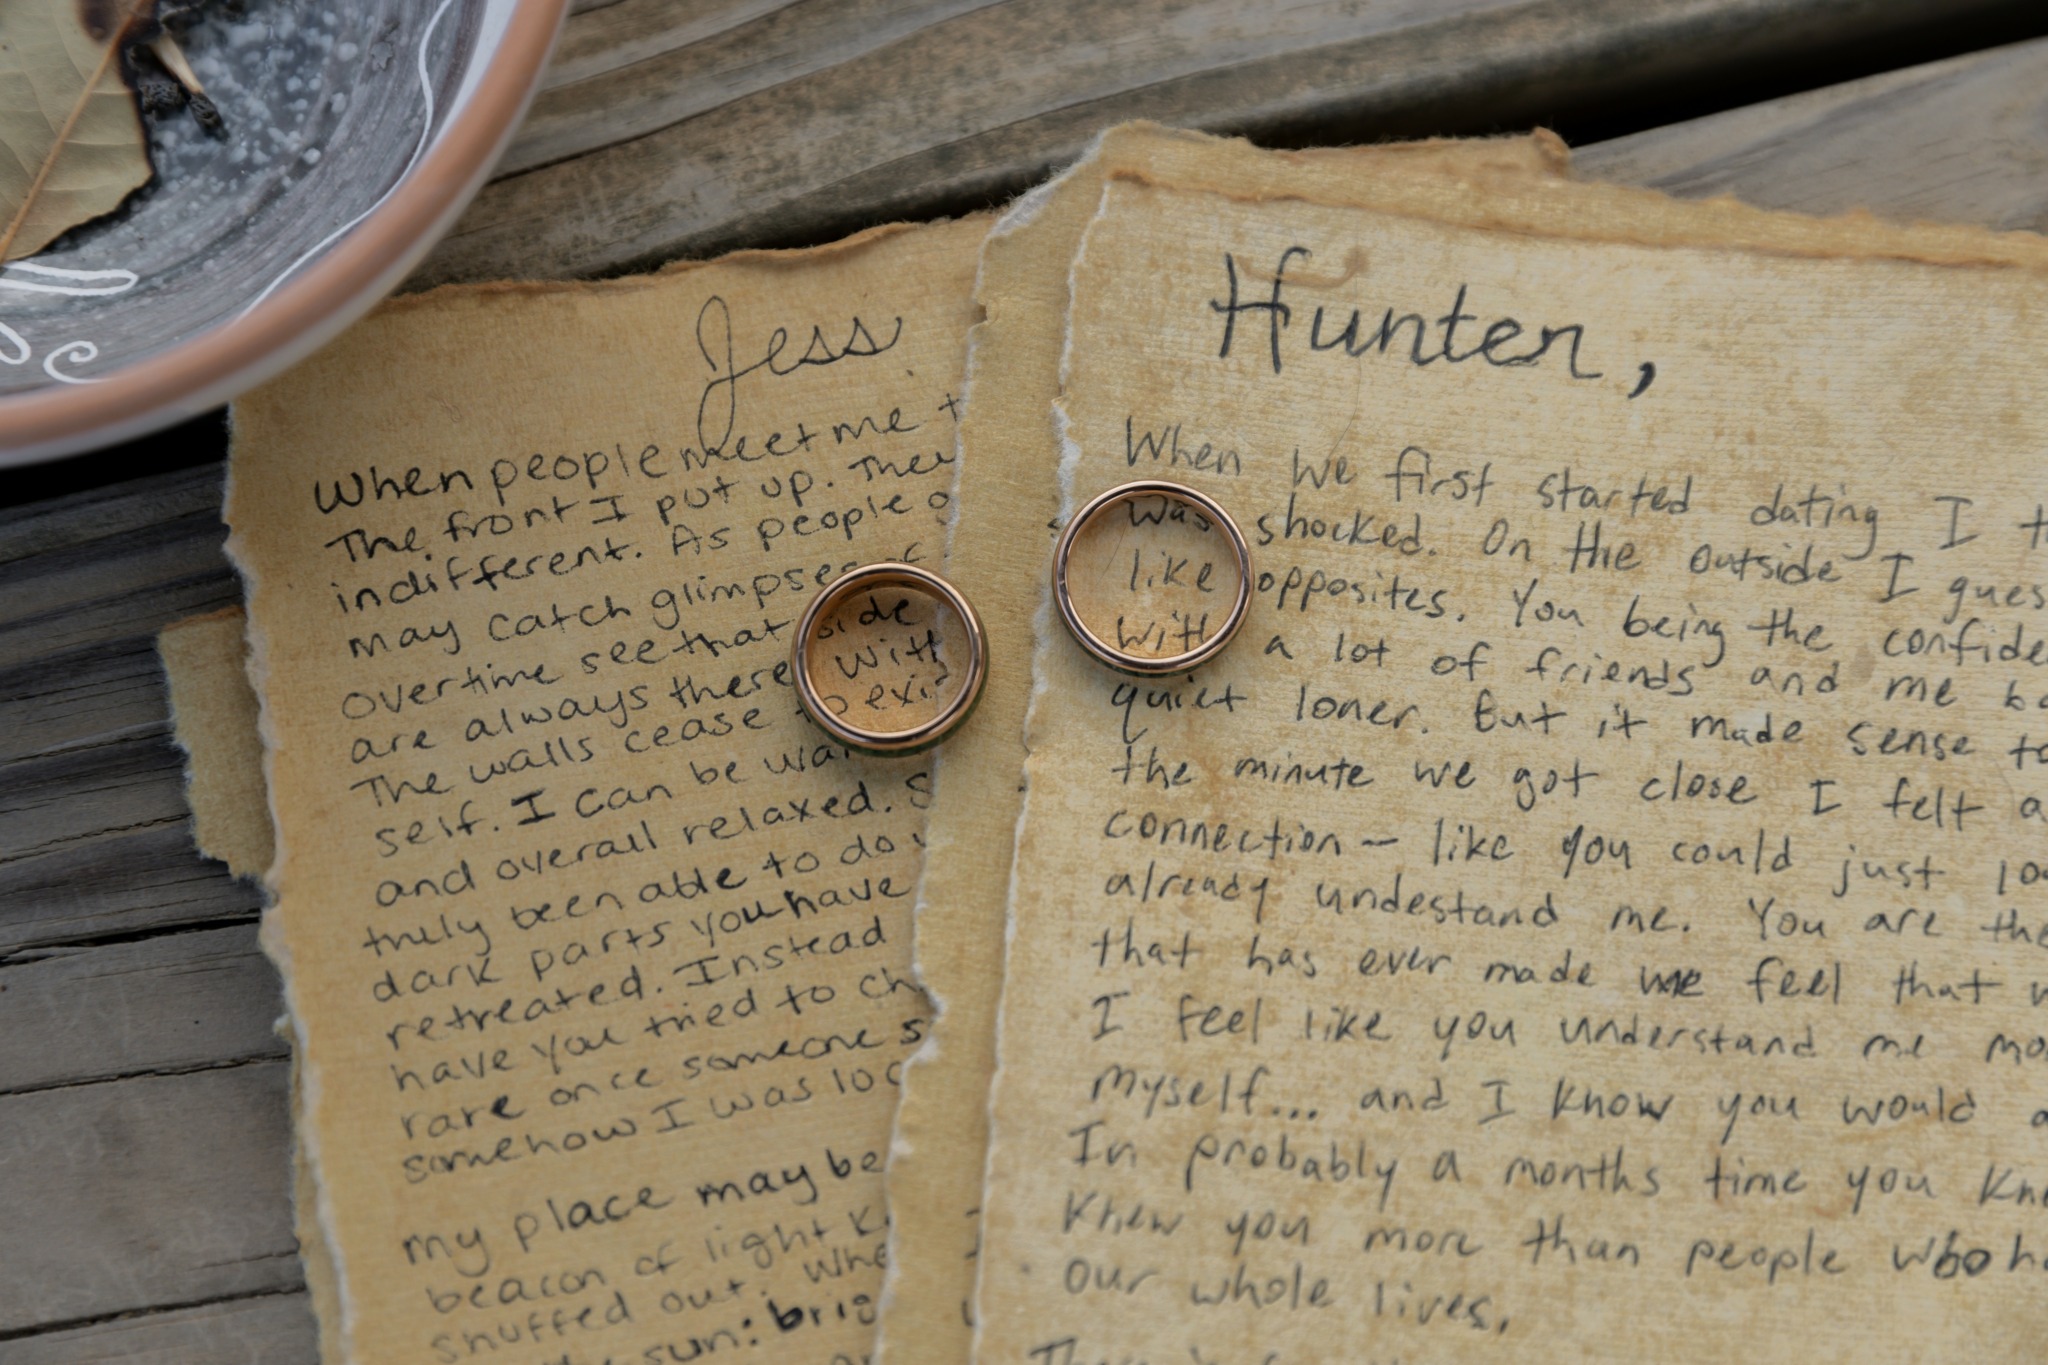 Jess
When people meet me
The front I put up. They
indifferent. As people
may catch glimpses of
overtime see that side
are always there with
The walls cease to exist
self. I can be
and overall relaxed.
truly been able to do
dark parts you have
retreated. Instead
have you tried to
rare once someone
somehow I was
my place may be
beacon of light
snuffed out. Whe
sun: brig
Hunter,
When we first started dating I
was shocked. On the outside I gues
like opposites. You being the confide
with a lot of friends and me
quiet loner. But it made sense to
the minute we got close I felt a
connection - like you could just
already undestand me. You are the
that has ever made me feel that
I feel like you understand me mo
myself... and I know you would a
In probably a months time you kn
knew you more than people who ha
our whole lives.